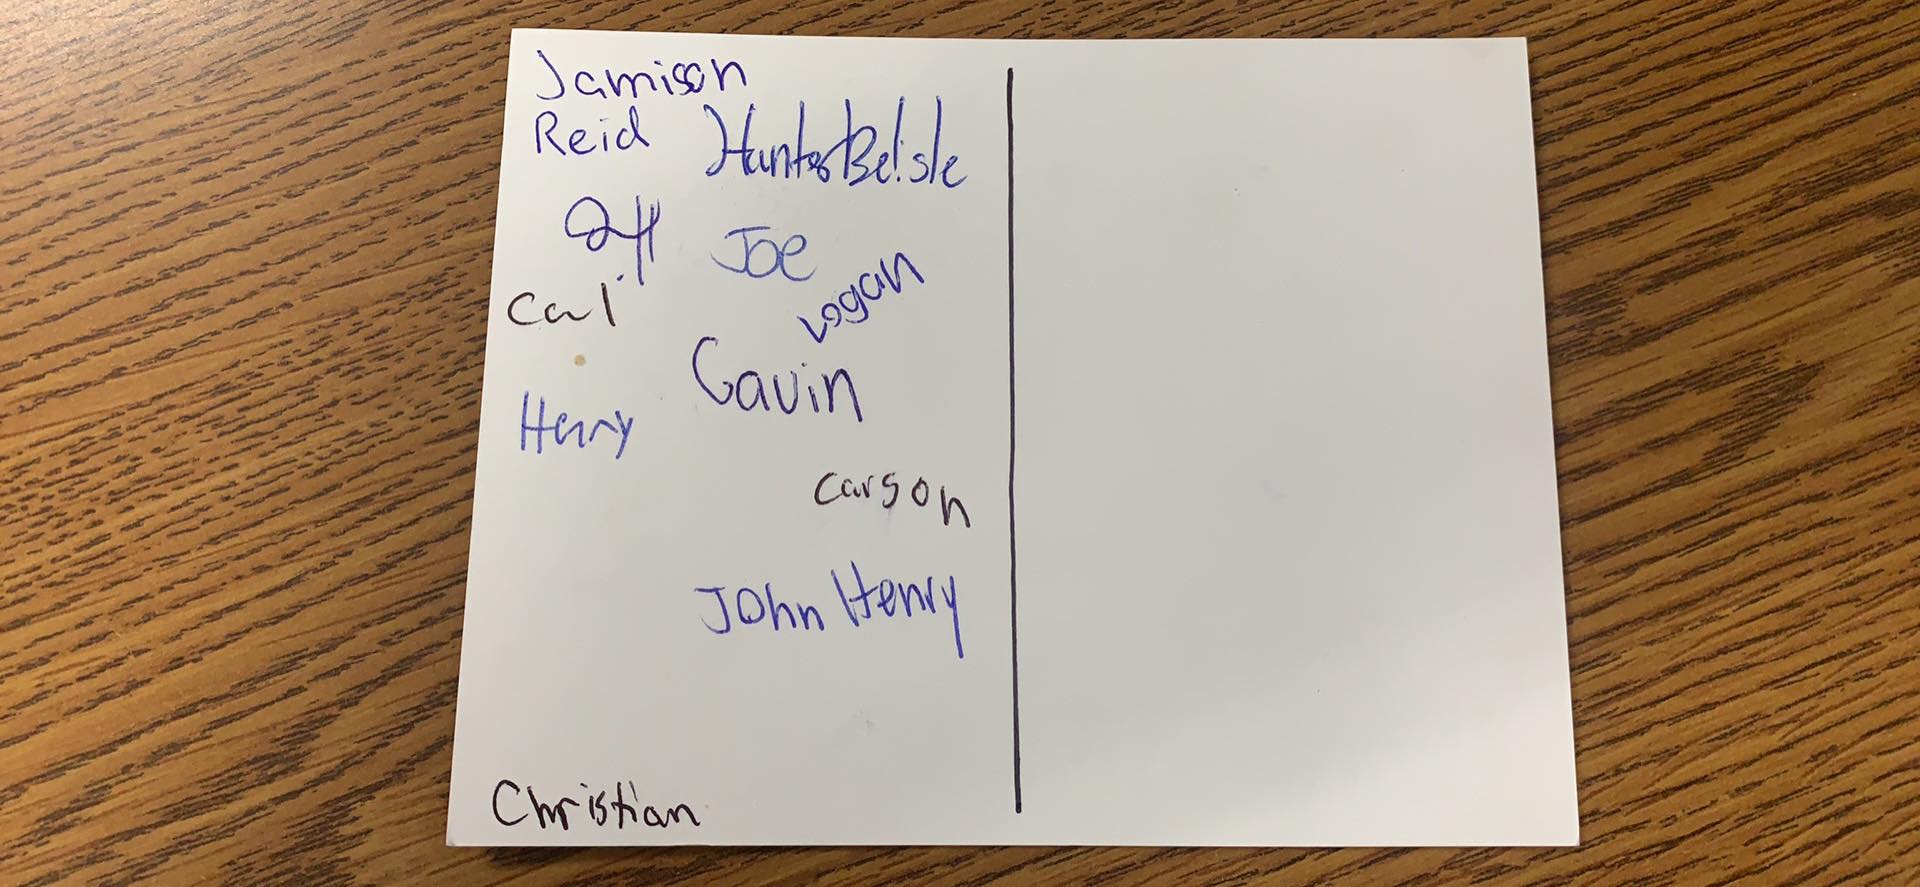 Jamison
Reid
Hunter Belisle
Joe
Logan
Carl
Gavin
Henry
Carson
John Henry
Christian